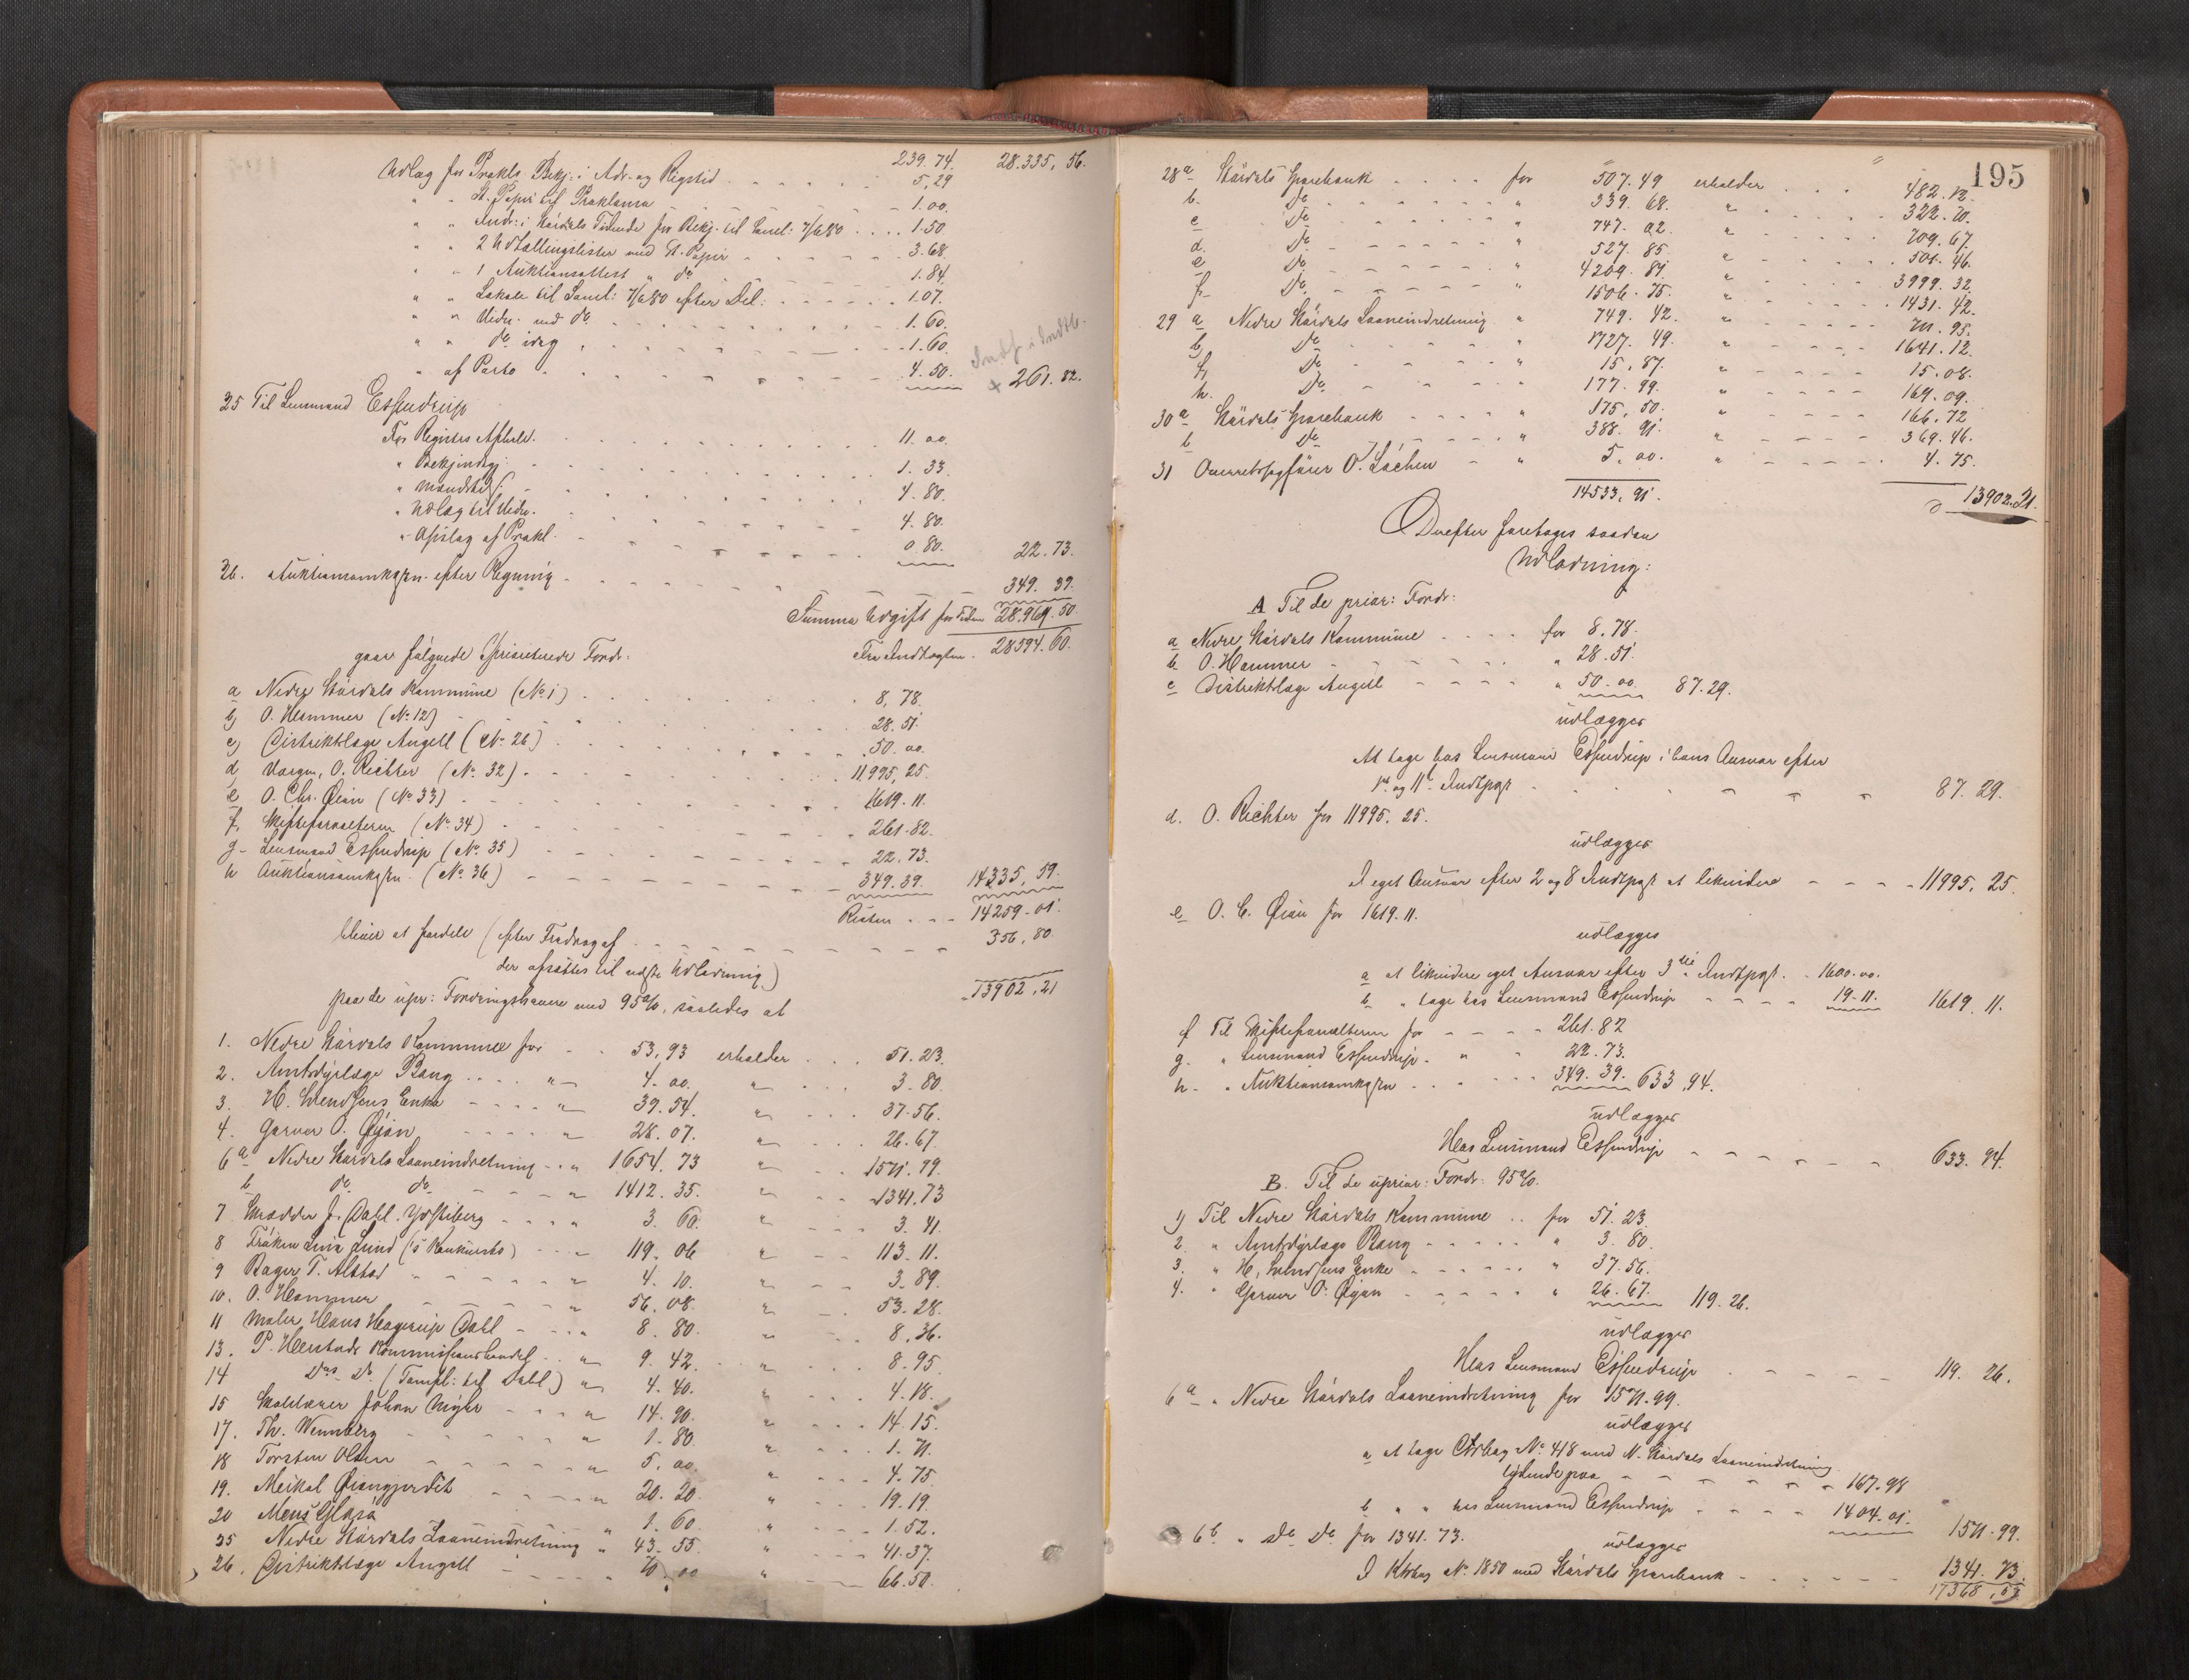 239.74. 28.335,56.
Udlæg for Prokla Bekj: i Adr. og Rigstid 5,29
" " St. Papir til Proklama 1.00.
" " Indr: i Stördals Tidende for Bekj. til Saml: 7/6 80 1.50
" " 2 Udtællingslister med St. Papir 3.68.
" " 1 Auktionsattest " do 1.84
" " Lokale til Saml: 7/6 80 efter Del: 1.07.
" " Vidn. ved do 1.60.
" " do 1.60.
" af Porto 4.50. + 261.82.
35 Til Lensmand Essendrup
For Registr. Afhold. 11.00
" Bekjendtgj: 1.33.
" 4.80.
" Udlæg til Vidn. 4.80.
" Opslag af Prokl. 0.80. 22.73.
36. Auktionsomkgtn. efter Regning 349.39.
Summa Udgift 28.969.50.
Fra Indtægten 28594.60.
gaar følgende prioriterede Fordr:
a Nedre Stördals Kommune (No 1) 8,78.
b, O. Hammer (No 12) 28.51.
c, Distriktslæge Angell (No 26) 50.00.
d O. Richter (No. 32) 11995,25.
e O. Chr. Øien (No 33) 1619.11.
f, Skifteforvalteren (No 34) 261.82.
g Lensmand Essendrup (No. 35) 22.73.
h Auktionsomkgtn. (No. 36) 349.39. 14335,59.
Resten 14259.01.
bliver at fordele (efter Fradrag af 356,80
der afsættes til næste Udlodning)
13902,21
paa de upr: Fordringshavere med 95%, saaledes at
1. Nedre Stördals Kommune for 53,93 erholder 51.23.
2. Amtsdyrlæge Bang " 4.00. " 3.80
3. H. Svendsens Enke " 39.54. " 37.56.
4. Garver O. Øyan " 28.07. " 26.67.
6a Nedre Stördals Laaneindretning " 1654.73 " 1571.99.
b do do " 1412.35. " 1341.73
7 Skrædder J. Dahl " 3.60. " 3.41.
8 Frøken Lund " 119.06 " 113.11.
9 Bager T. Alstad " 4.10. " 3.89.
10. O. Hammer " 56.08. " 53.28.
11 Maler Hans Hagerup Dahl " 8.80. " 8.36.
13. P. Herstads Kommissionshandel " 9.42. " 8.95.
14 Do Do (Dahl) " 4.40. " 4.18.
15 Johan Myhr " 14.90. " 14.15.
17. Th. Wennberg " 1.80. " 1.71.
18 Torsten Olsen " 5.00. " 4.75.
19. Meikal Øiangjerdet " 20.20. " 19.19.
20 Mons 1.60. " 1.52.
25 Nedre Stördals Laaneindretning " 43.55. " 41.37.
26. Distriktslæge Angell " 70.00 " 66.50.
195
28a Stördals Sparebank for 507.49 erholder 482.12.
b. Do " 339.68. " 322.70.
c Do " 747.02. " 709.67.
d. Do " 527.85. " 501.46.
e Do " 4209.81. " 3999.32.
f Do " 1506.75. " 1431.42.
29 a Nedre Stördals Laaneindretning " 749.42. " 711.95.
b Do " 1727.49. " 1641.12.
Do " 15.87. " 15.08.
h. Do " 177.99. " 169.09.
30a Stördals Sparebank " 175,50. " 166.72
b Do " 388.91. " 369.46.
31 Overretssagfører O. Løchen " 5.00. " 4.75.
14533,91. 13902.21.
Derefter foretages saadan
Udlodning:
A Til de prior: Fordr:
a Nedre Stördals Kommune for 8.78.
b. O. Hammer " 28.51.
c Distriktslæge Angell " 50.00. 87.29.
udlægges
At tage hos Lensmand Essendrup i hans Ansvar efter
1ste og 11te Indtpgt 87.29.
d. O. Richter for 11995.25.
udlægges
I eget Ansvar efter 2 og 8 Indtpgt at likvidere 11995.25.
e O. C. Øien for 1619.11.
udlægges
a at likvidere eget Ansvar efter 3die Indtpgt. 1600.00.
b " tage hos Lensmand Essendrup 19.11. 1619.11.
f Til Skifteforvalteren for 261.82
g. " Lensmand Essendrup " 22.73.
h. " Auktionsomkgtn 349.39. 633,94.
udlægges
Hos Lensmand Essendrup 633.94.
B. Til de uprior: Fordr. 95%.
1, Til Nedre Stördals Kommune for 51.23.
2. " Amtsdyrlæge Bang " 3.80.
3. " H. Svendsens Enke " 37.56.
4. " Garver O. Øyan " 26.67. 119.26.
udlægges
Hos Lensmand Essendrup 119.26.
6a " Nedre Stördals Laaneindretning for 1571.99.
udlægges
a at tage Ctrbog No. 418 med N. Stördals Laaneindretning
lydende paa 167.98
b " " hos Lensmand Essendrup 1404.01. 1571.99.
6b. " Do Do for 1341.73.
udlægges
I Ktrbog No. 1850 med Stördals Sparebank 1341.73.
17368,57